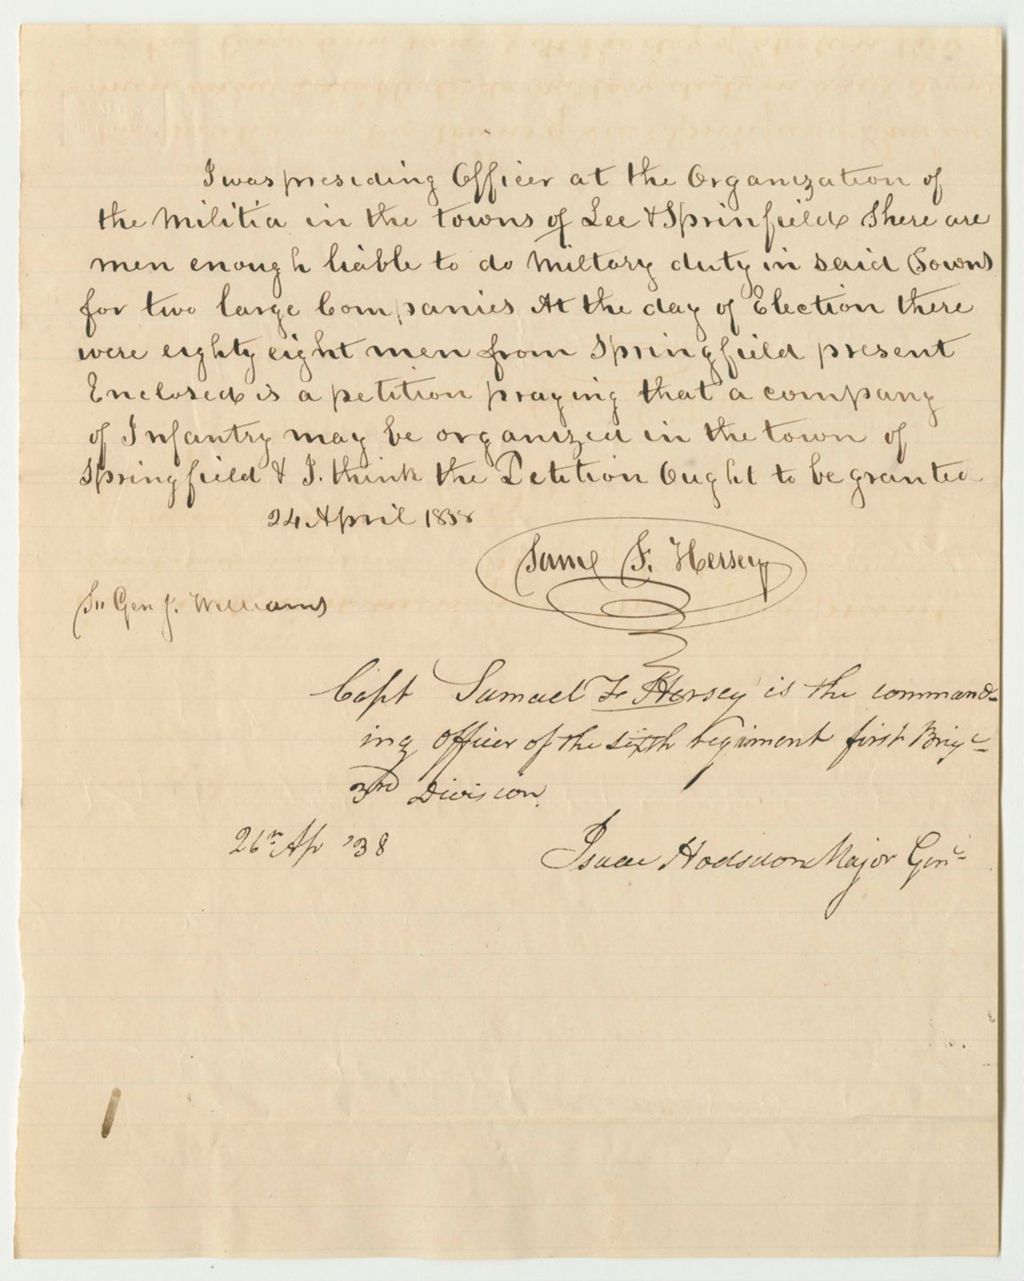 I was presiding Officer at the Organization of
the Militia in the towns of Lee & Sprinfield There are
men enough liable to do Miltary duty in said Towns
for two large Companies At the day of Election there
were eighty eight men from Springfield present
Enclosed is a petition praying that a company
of Infantry may be organized in the town of
Springfield & I. think the Petition Ought to be granted
24 April 1838
Saml F. Hersey
To Gen J. Williams
Capt Samuel F Hersey is the command-
ing officer of the sixth regiment first Brige
3rd Division
26th Ap '38
Isaac Hodsdon Major Genl